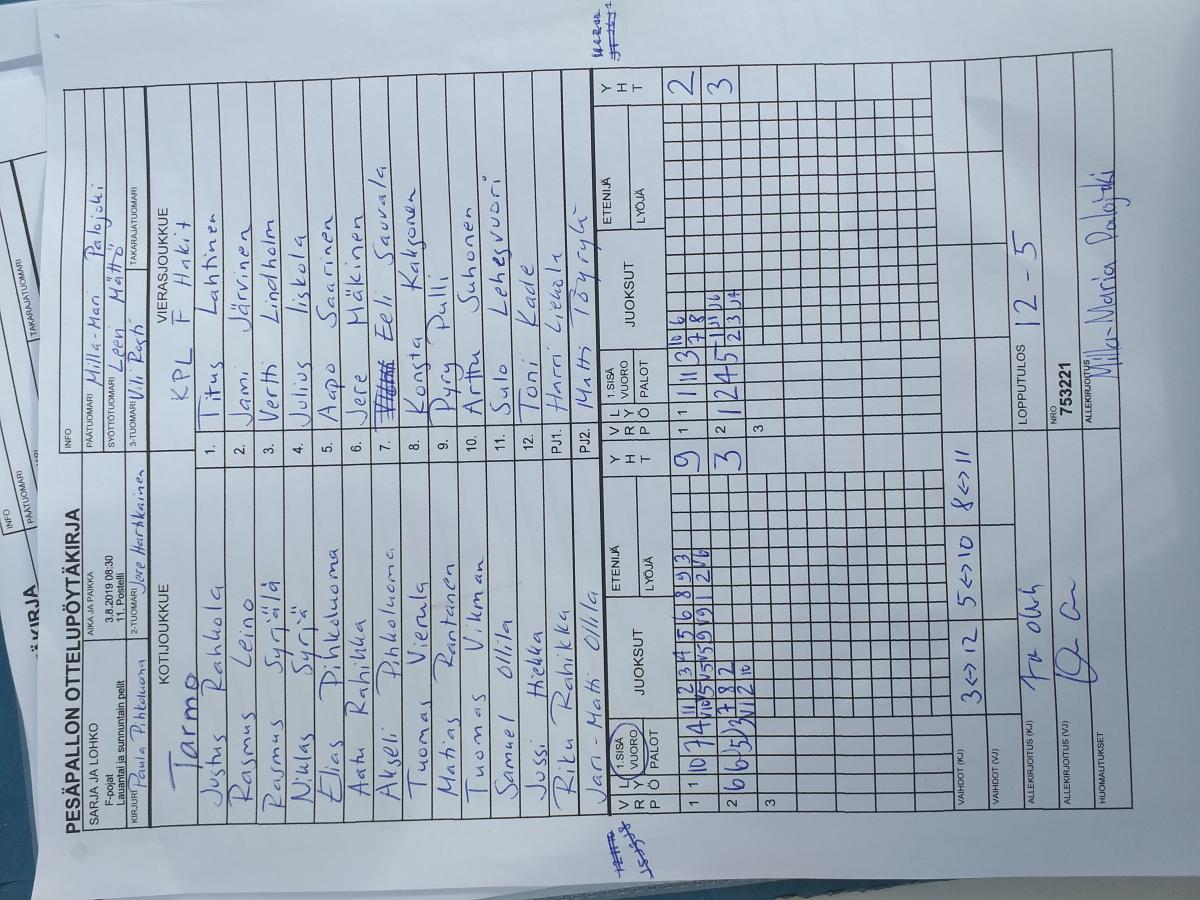 PESÄPALLON OTTELUPÖYTÄKIRJA
SARJA JA LOHKO
F-pojat
Lauantai ja sunnuntain pelit
AIKA JA PAIKKA
3.8.2019 08:30
11. Postelli
INFO
PÄÄTUOMARI Milla-Mari Palojoki
SYÖTTÖTUOMARI Leevi Mättö
KIRJURI Paula Pihkoluoma
2-TUOMARI Jere Hartikainen
3-TUOMARI
TAKARAJATUOMARI
KOTIJOUKKUE
Tarmo
VIERASJOUKKUE
KPL F Hakit
Justus Rahkola 1. Titus Lahtinen
Rasmus Leino 2. Jami Järvinen
Rasmus Syrjälä 3. Vertti Lindholm
Niklas Syrjä 4. Julius Iiskola
Elias Pihkoluoma 5. Aapo Saarinen
Aatu Rahikka 6. Jere Mäkinen
Akseli Pihkoluoma 7. Eeli Saurala
Tuomas Vierula 8. Konsta Kahsonen
Matias Rantanen 9. Pyry Pulli
Tuomas Vikman 10. Arttu Suhonen
Samuel Ollila 11. Sulo Lehesvuori
Jussi Hiekka 12. Toni Kade
Riku Rahikka PJ1. Harri Liehola
Jari-Matti Ollila PJ2. Matti Töyrylä
V R P L Y Ö 1.SISÄ VUORO PALOT JUOKSUT ETENIJÄ LYÖJÄ Y H T
V R P L Y Ö 1.SISÄ VUORO PALOT JUOKSUT ETENIJÄ LYÖJÄ Y H T
1 1 10 7 4 11 2 3 4 5 6 8 9 3 9
1 1 1 11 3 10 6 2
7 8
2 6 6 5 3 7 8 2 3
2 1 2 4 5 1 11 16
2 3
3
3
VAIHDOT (KJ) 3<->12 5<->10 8<->11
VAIHDOT (VJ)
ALLEKIRJOITUS (KJ)
LOPPUTULOS 12 - 5
ALLEKIRJOITUS (VJ)
NRO
753221
HUOMAUTUKSET
ALLEKIRJOITUS
Milla-Maria Palojoki
ÄKIRJA
INFO
PÄÄTUOMARI
TAKARAJATUOMARI
TAKARAJATUOMARI